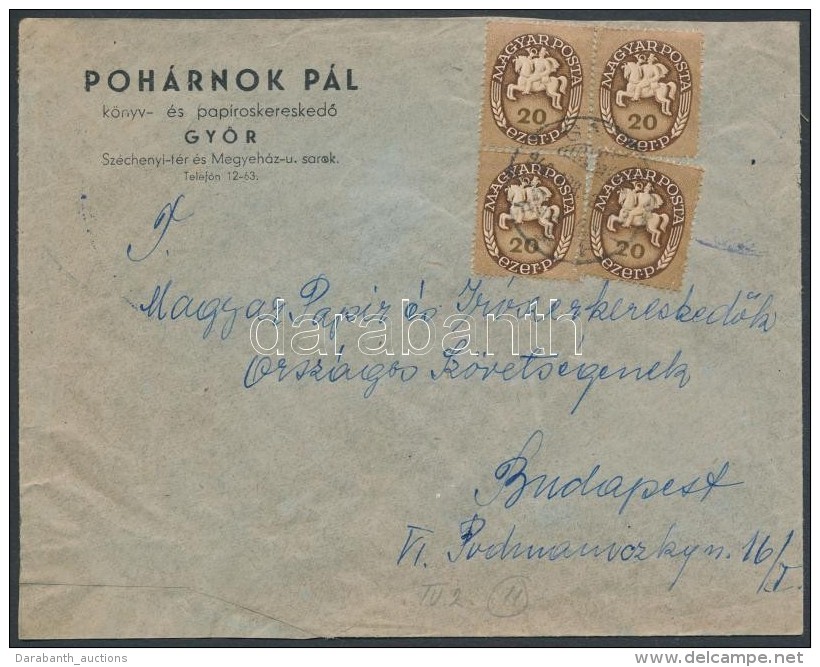 POHÁRNOK PÁL
könyv- és papíroskereskedő
GYŐR
Széchenyi-tér és Megyeház-u. sarok.
Telefón 12-63.
MAGYAR POSTA
20
ezer p.
MAGYAR POSTA
20
ezer p.
MAGYAR POSTA
20
ezer p.
MAGYAR POSTA
20
ezer p.
T.
Magyar Papír és Irószerkereskedők
Országos Szövetségének
Budapest
VI. Podmaniczky u. 16/I.
IV 2. 11
darabanth
Darabanth_auctions
www.delcampe.net